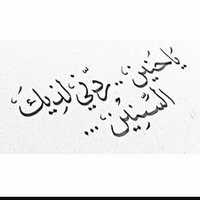 يَا حَنِين .. رِدّنِي لِذيكَ
السِّنِين ...